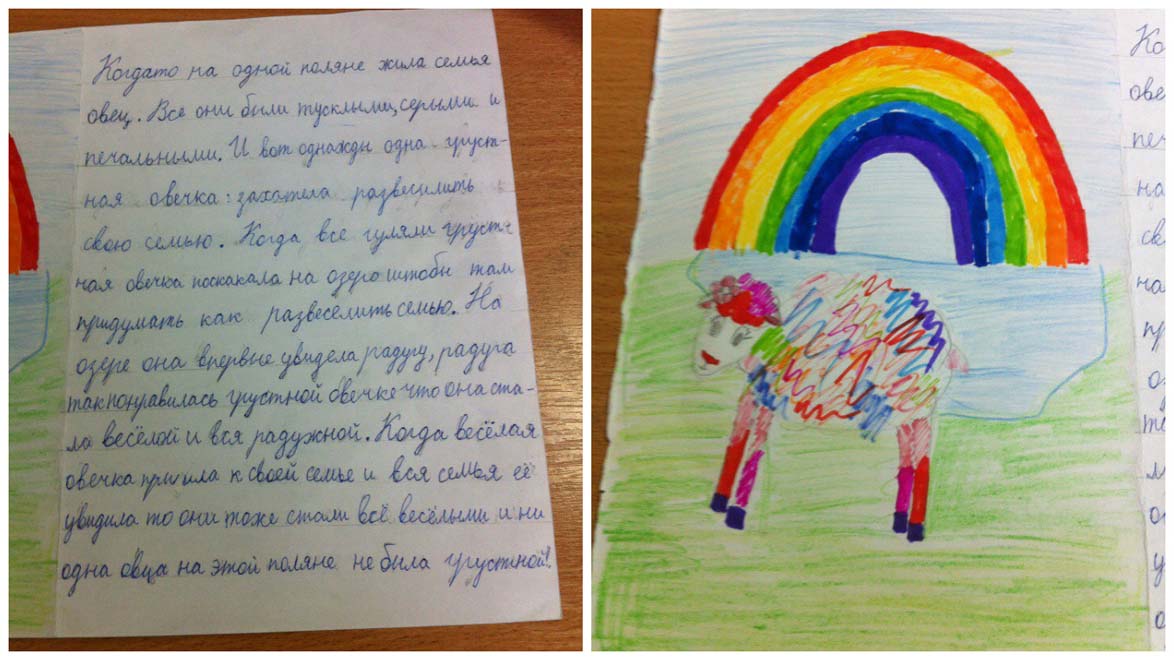 Когдато на одной поляне жила семья
овец. Все они были тусклыми, серыми и
печальными. И вот однажды одна груст-
ная овечка: захотела развесилить
свою семью. Когда все гуляли груст-
ная овечка поскакала на озеро штобы там
придумать как развеселить семью. На
озере она впервые увидела радугу, радуга
так понравилась грустной овечке что она ста-
ла весёлой и вся радужной. Когда весёлая
овечка пришла к своей семье и вся семья её
увидила то они тоже стали всё весёлыми и ни
одна овца на этой поляне не была грустной!
Ко
ове
печ
на
св
на
пр
оз
та
л
о
у
о